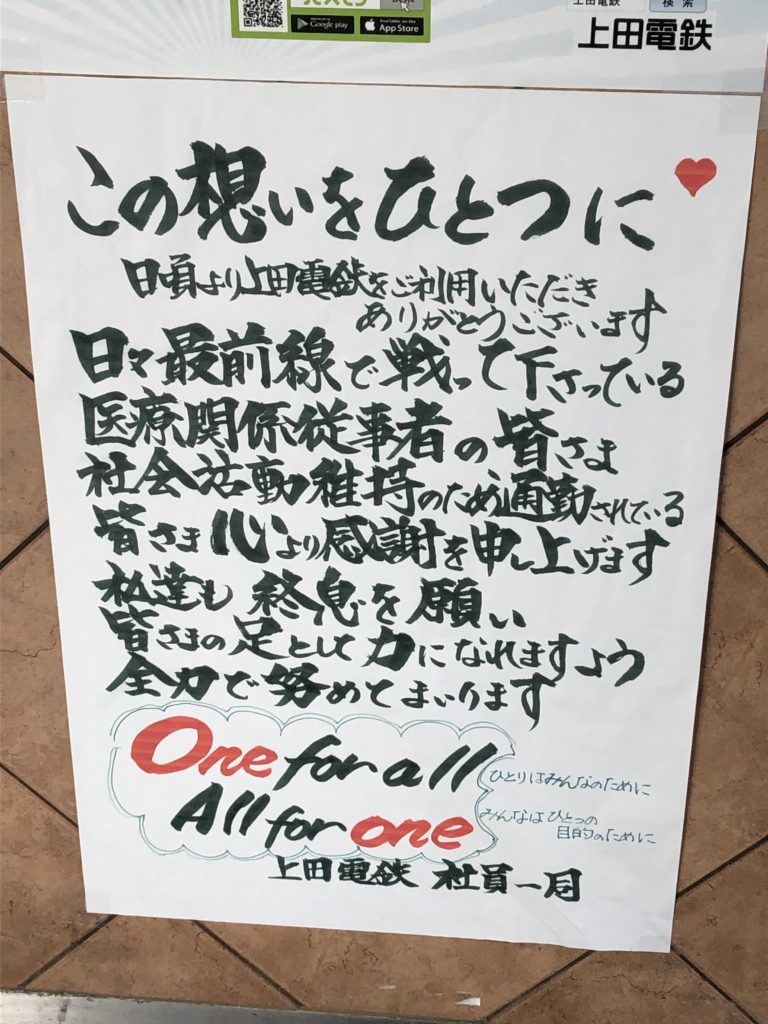 Google play
Available on the
App Store
上田電鉄
検索
上田電鉄
この想いをひとつに
日頃より上田電鉄をご利用いただき
ありがとうございます
日々最前線で戦って下さっている
医療関係従事者の皆さま
社会活動維持のため通勤されている
皆さま心より感謝を申し上げます
私達も終息を願い
皆さまの足として力になれますよう
全力で努めてまいります
One for all
ひとりはみんなのために
All for one
みんなはひとつの
目的のために
上田電鉄 社員一同